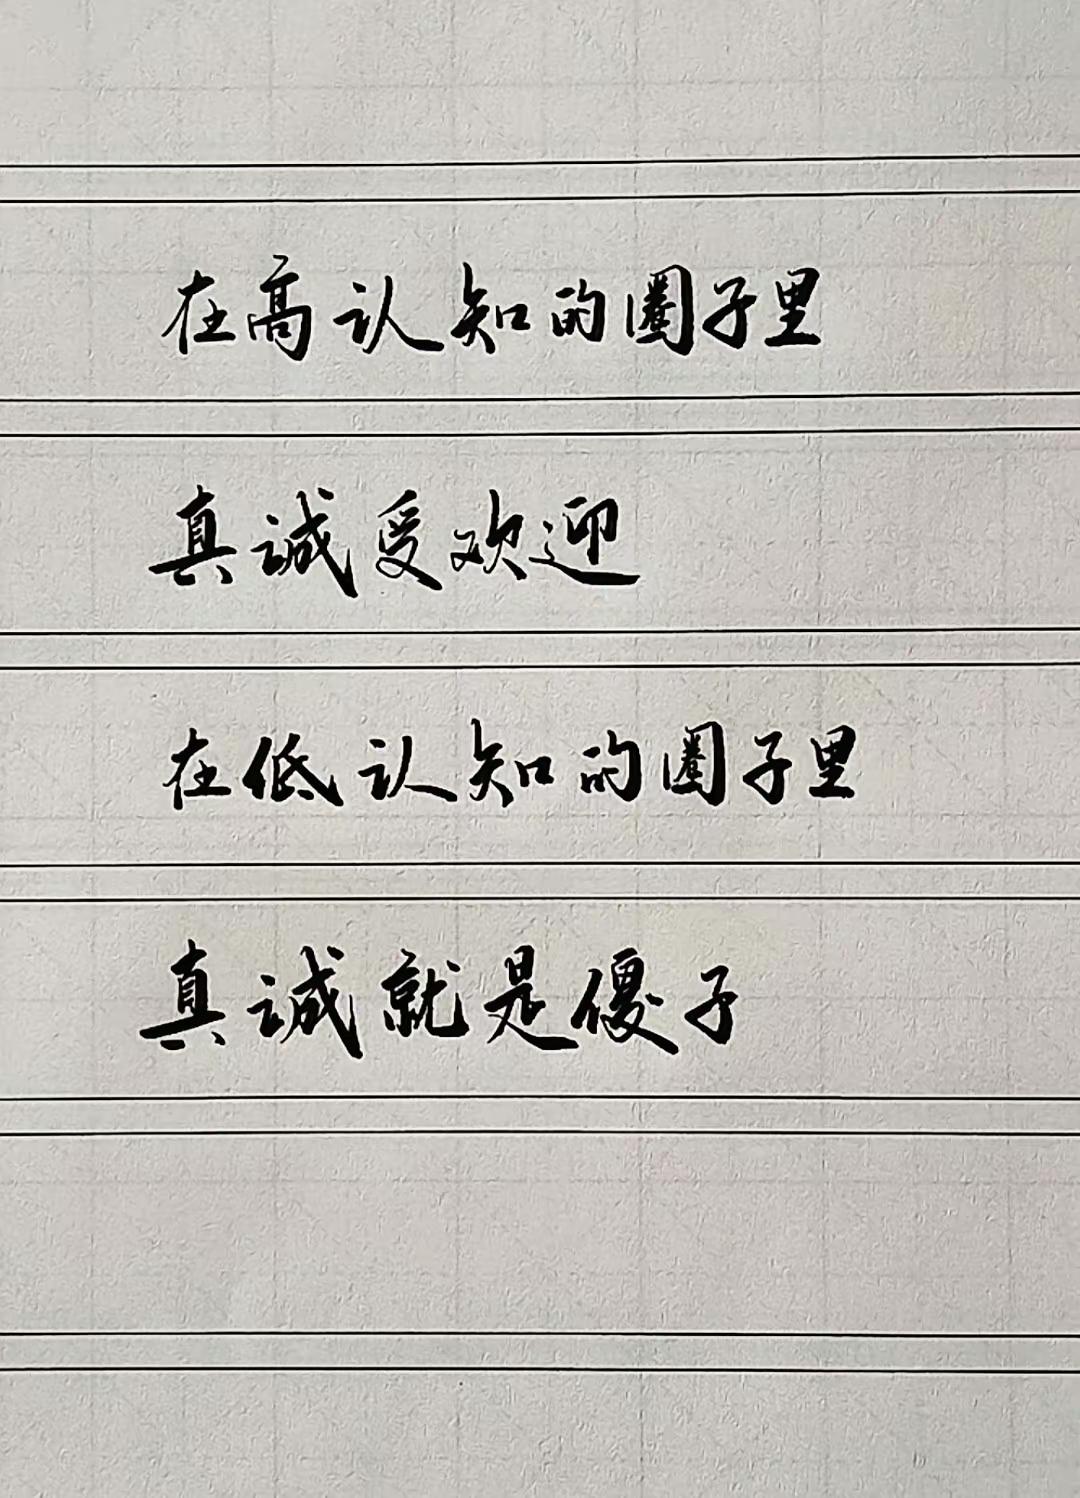 在高认知的圈子里
真诚受欢迎
在低认知的圈子里
真诚就是傻子